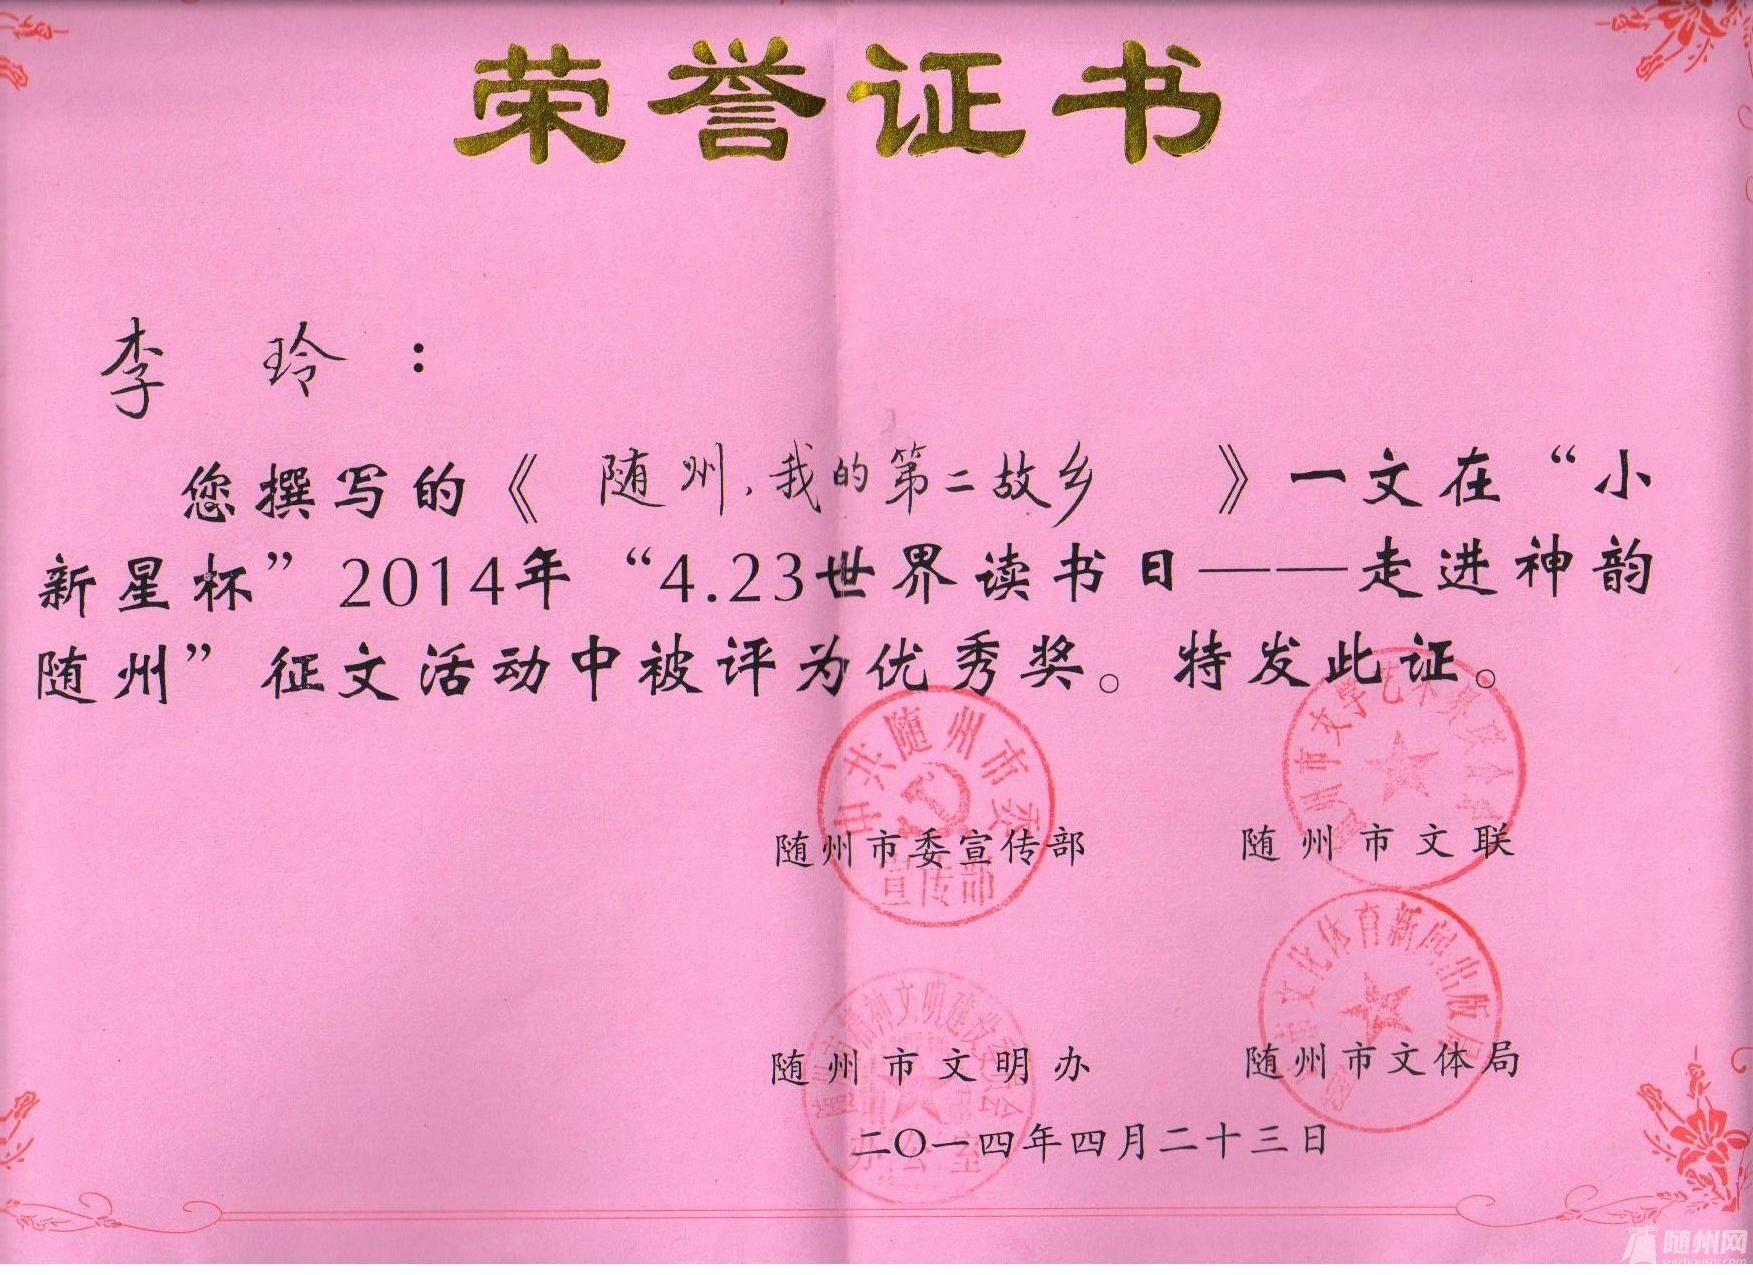 荣誉证书
李 玲：
您撰写的《随州，我的第二故乡》一文在“小
新星杯”2014年“4.23世界读书日——走进神韵
随州”征文活动中被评为优秀奖。特发此证。
中共随州市委
宣传部
随州市文学艺术界联合会
随州市委宣传部 随州市文联
文化体育新闻出版局
市精神文明建设委员会
办公室
随州市文明办 随州市文体局
二〇一四年四月二十三日
随州网
suizhoushi.com